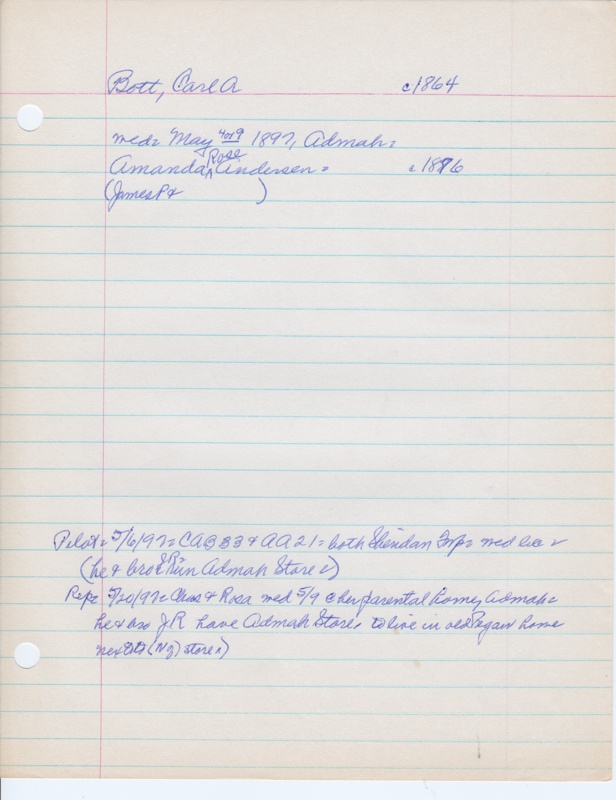 Bott, Carl A c1864
med= May 4 or 9 1897, Admah=
Amanda Rose Andersen= c1876
(James P & )
Pilot= 5/6/97= CAB 33 & AA 21= both Sheridan Twp= med lic=
(he & bro run Admah Store=)
Rep= 5/20/97= Chas & Rosa med 5/9 @ her parental home, Admah=
he & bro JR have Admah Store, to live in old home
next to store=)